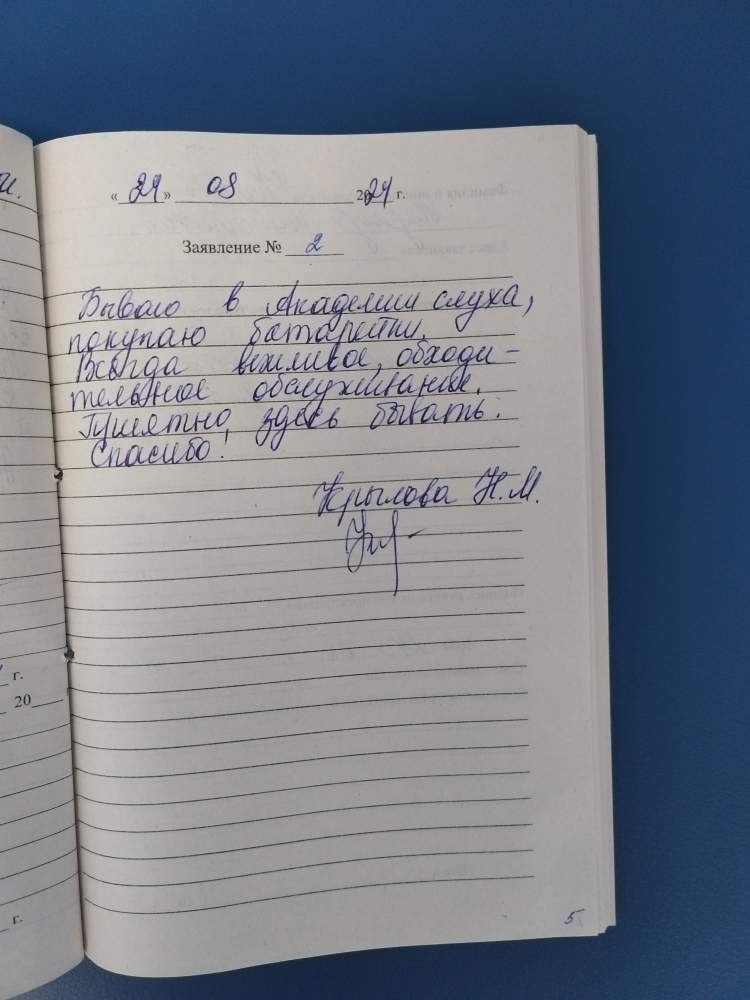 «21» 08 2021 г.
Заявление № 2
Бываю в Академии слуха,
покупаю батарейки.
Всегда вежливое, обходи-
тельное обслуживание.
Приятно здесь бывать.
Спасибо!
Крылова Н.М.
г.
20
г.
5